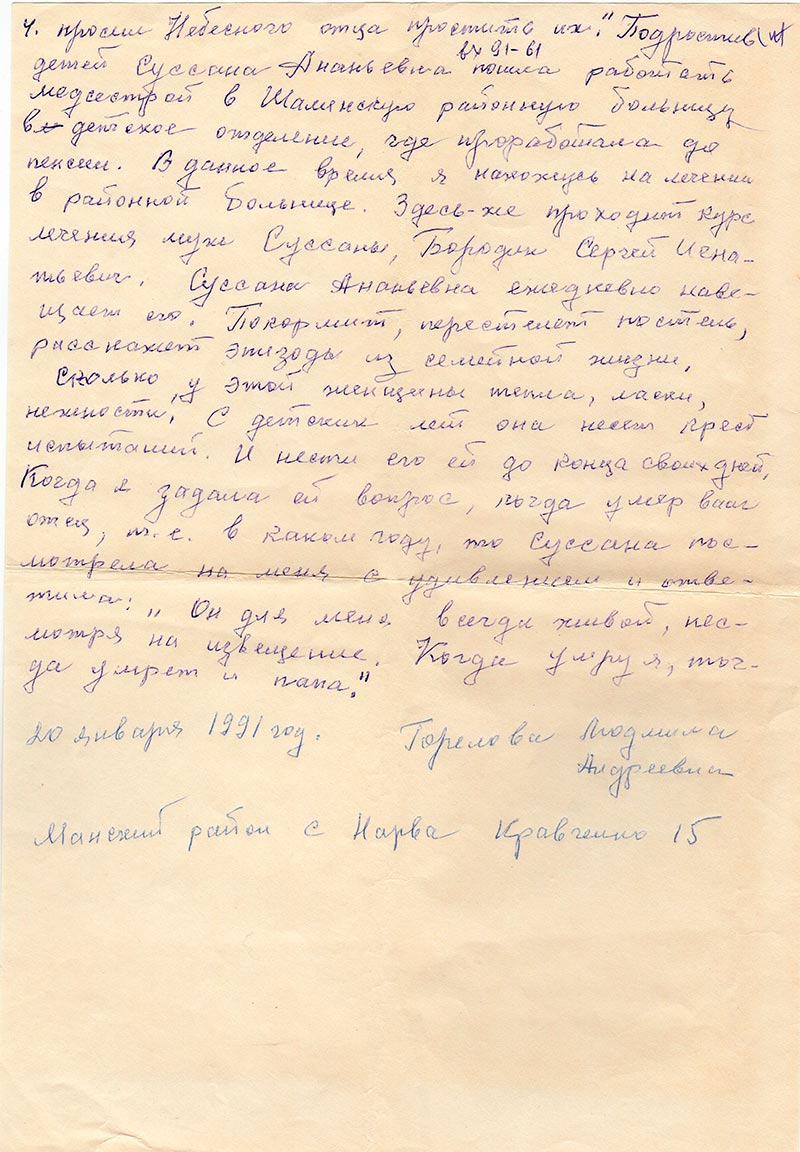 4. просил Небесного отца простить их." Подрастив
вх 91-61
детей Суссана Ананьевна пошла работать
медсестрой в Шалинскую районную больницу
в детское отделение, где проработала до
пенсии. В данное время я нахожусь на лечении
в районной больнице. Здесь-же проходит курс
лечения муж Суссаны, Бородин Сергей Игна-
тьевич. Суссана Ананьевна ежедневно наве-
щает его. Покормит, перестелет постель,
расскажет эпизоды из семейной жизни.
Сколько у этой женщины тепла, ласки,
нежности. С детских лет она несет крест
испытаний. И нести его ей до конца своих дней.
Когда я задала ей вопрос, когда умер ваш
отец, т.е. в каком году, то Суссана пос-
мотрела на меня с удивлением и отве-
тила: „Он для меня всегда живой, нес-
мотря на извещение. Когда умру я, тог-
да умрет и папа."
20 января 1991 год. Горелова Людмила
Андреевна
Манский район с Нарва Кравченко 15